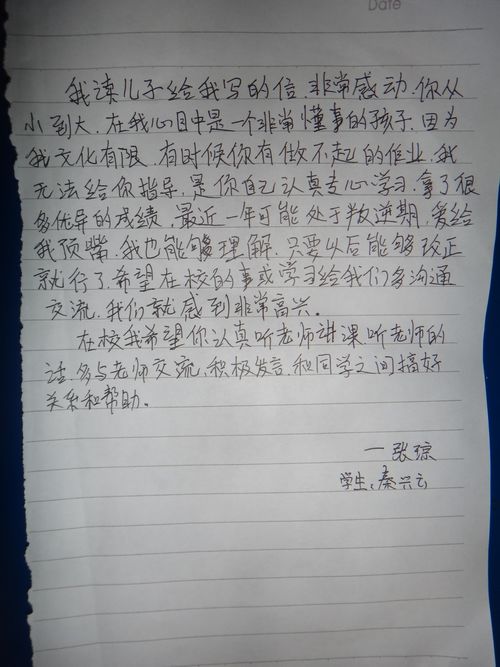 Date
我读儿子给我写的信,非常感动,你从
小到大,在我心目中是一个非常懂事的孩子,因为
我文化有限,有时候你有做不起的作业,我
无法给你指导,是你自己认真专心学习,拿了很
多优异的成绩,最近一年可能处于叛逆期,爱给
我顶嘴,我也能够理解,只要以后能够改正
就行了,希望在校的事或学习给我们多沟通
交流,我们就感到非常高兴。
在校我希望你认真听老师讲课,听老师的
话,多与老师交流,积极发言,和同学之间搞好
关系和帮助。
一张琼
学生:秦兴云